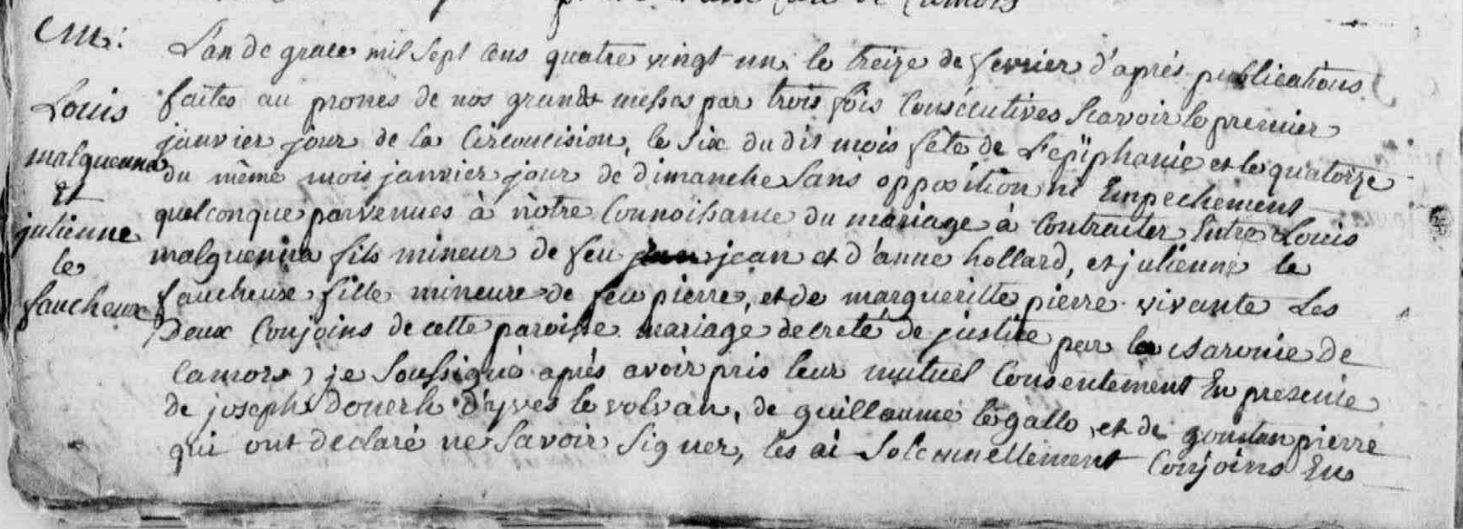 Curé de Camors
Cm:
Louis
malquenna
Et
julienne
le
faucheux
L'an de grace mil sept cens quatre vingt un, le treize de fevrier d'après publications
faites au prones de nos grandes messes par trois fois Consécutives Scavoir le premier
janvier jour de la Circoncision, le Six du dit mois fête de L'epiphanie et le quatorze
du même mois janvier jour de dimanche Sans opposition ni Empechement
quelconque parvenues à nôtre Connoissance du mariage à Contracter Entre Louis
malquenna fils mineur de feu jean et d'anne hollard, et julienne le
faucheux fille mineure de feu pierre, et de margueritte pierre vivante Les
Deux Conjoins de cette paroisse mariage decreté de justice par la Baronie de
Camors, je Soussigné après avoir pris leur mutuel Consentement En presence
de joseph d'yves le volvan, de guillaume le gallo, et de goustan pierre
qui ont declaré ne Savoir Signer, les ai Solemnellement Conjoins En